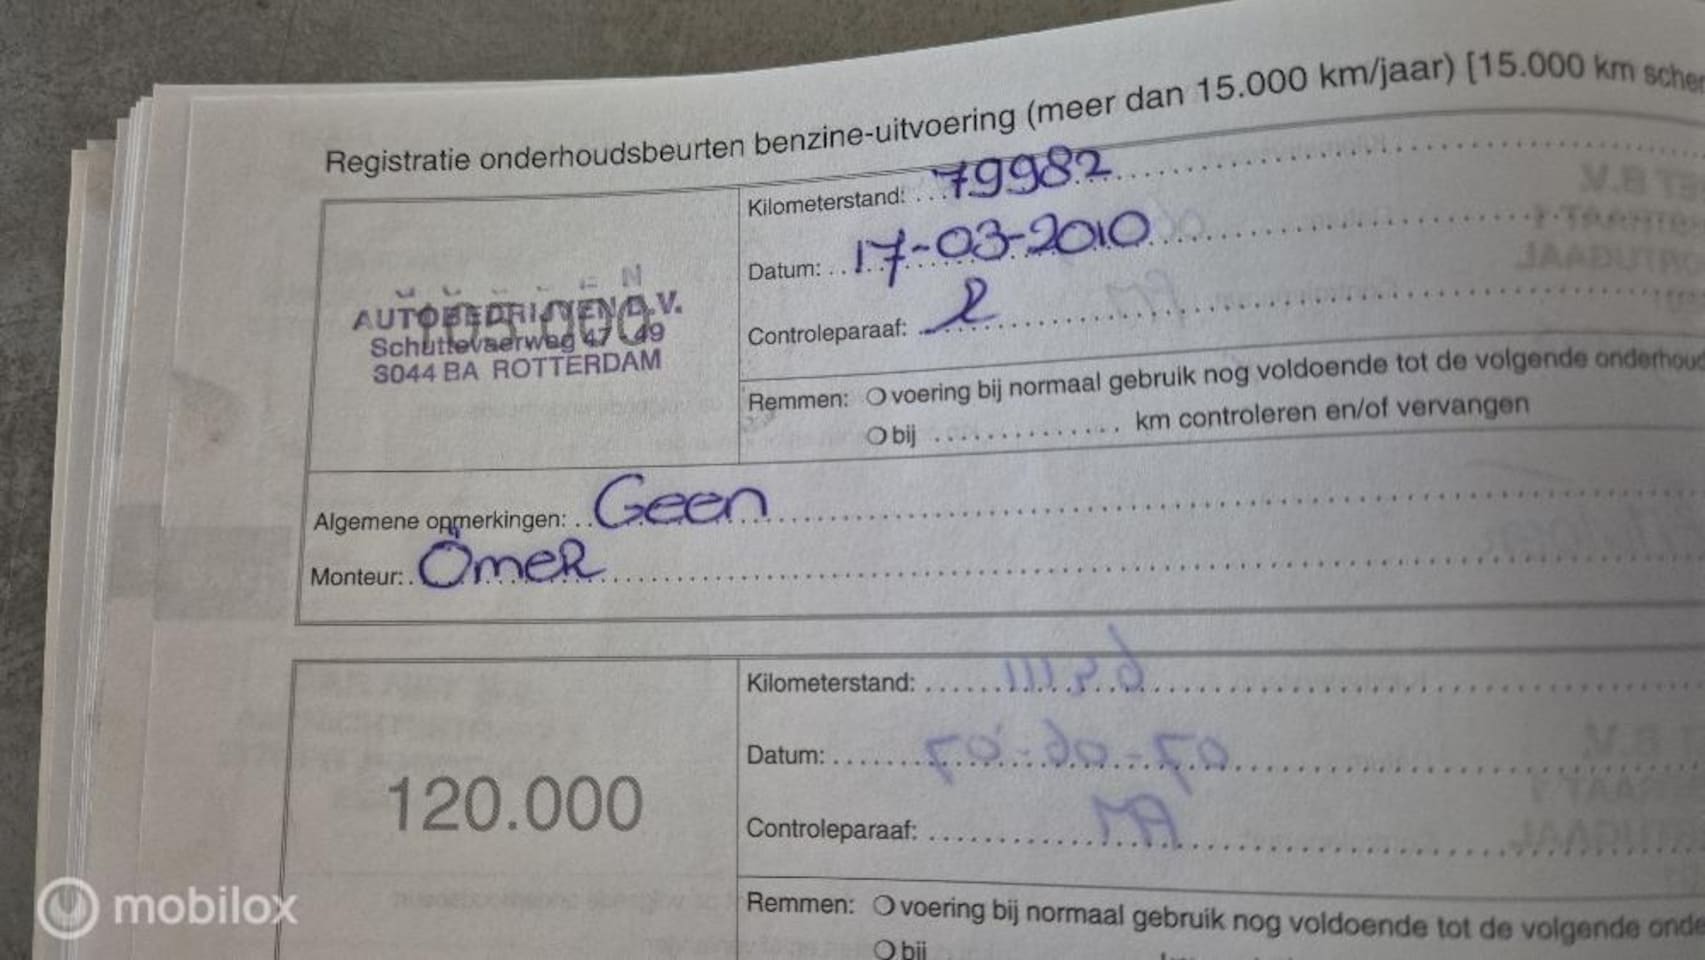 Registratie onderhoudsbeurten benzine-uitvoering (meer dan 15.000 km/jaar) [15.000 km
Kilometerstand: 79982
Datum: 17-03-2010
Controleparaaf:
AUTOBEDRIJVEN B.V.
105.000
Schuttevaerweg 47 - 49
3044 BA ROTTERDAM
Remmen: voering bij normaal gebruik nog voldoende tot de volgende
bij .............. km controleren en/of vervangen
Algemene opmerkingen: Geen
Monteur: Ömer
120.000
Kilometerstand:
Datum:
Controleparaaf:
Remmen: voering bij normaal gebruik nog voldoende tot de volgende
bij
mobilox